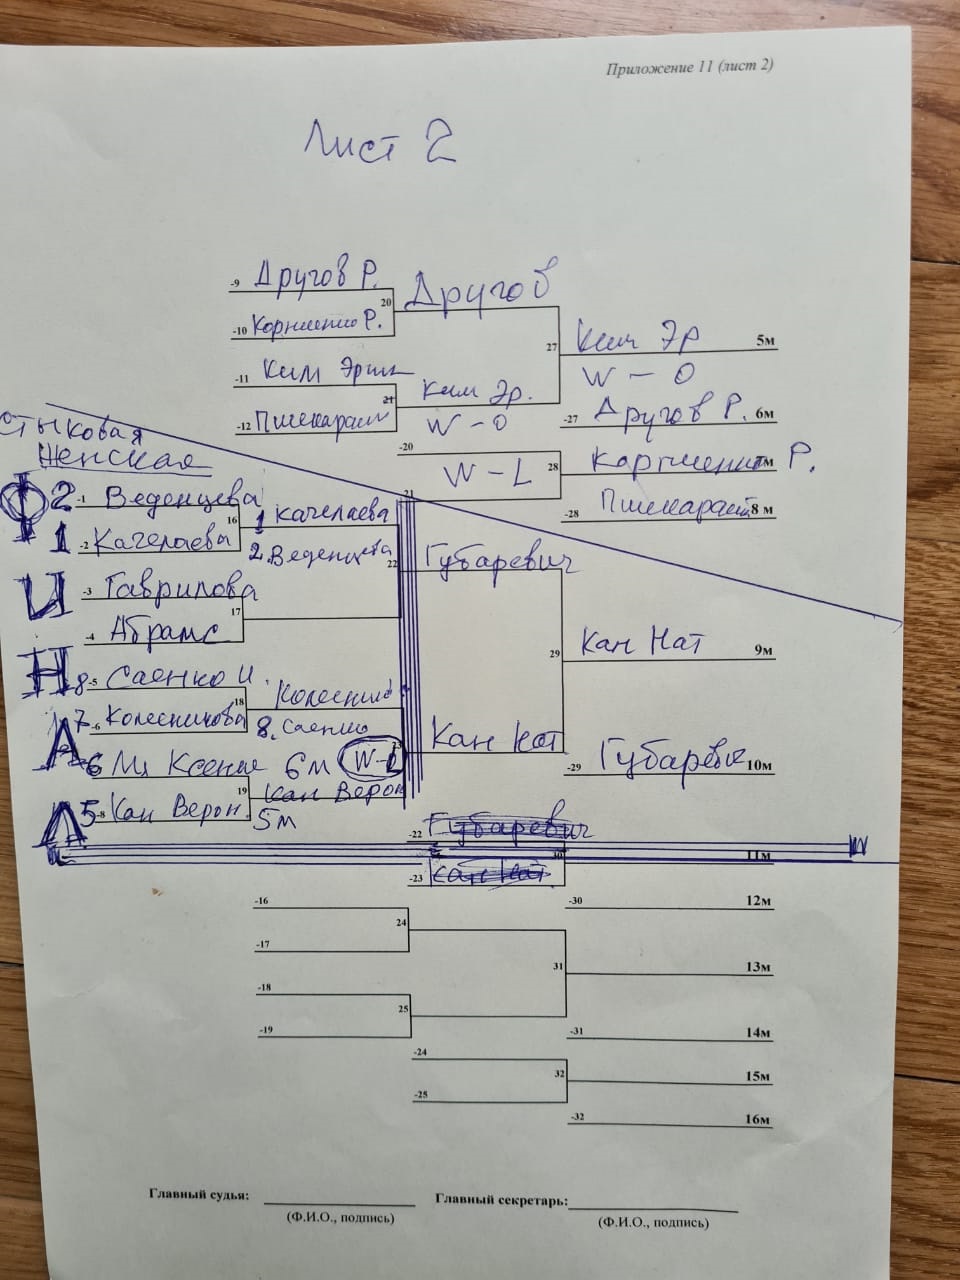 Приложение 11 (лист 2)
Лист 2
-9 Другов Р.
20 Другов
-10 Корниенко Р.
27 Ким Эр 5м
W - 0
-11 Ким Эрик
21 Ким Эр.
W - 0
-12
-27 Другов Р. 6м
-20
W - L 28 Корниенко Р. 7м
21
-28 8 м
стыковая
женская
ФИНАЛ
2 -1 Веденцева
16 1 Качелаева
1 -2 Качелаева
2. Веденцева
22 Губаревич
-3 Гаврилова
17
-4 Абрамс
29 Кан Нат 9м
8 -5 Саенко И.
18 Колесник
7 -6 Колесникова
8. Саенко
23 Кан Нат
6 Ксения 6м W-L
-29 Губареви 10м
19 Кан Верон
5 -8 Кан Верон.
5м
-22 Губаревич
30 11м
-23 Кан Нат
-30 12м
-16
24
-17
31 13м
-18
25
-19
-31 14м
-24
32 15м
-25
-32 16м
Главный судья: Главный секретарь:
(Ф.И.О., подпись) (Ф.И.О., подпись)